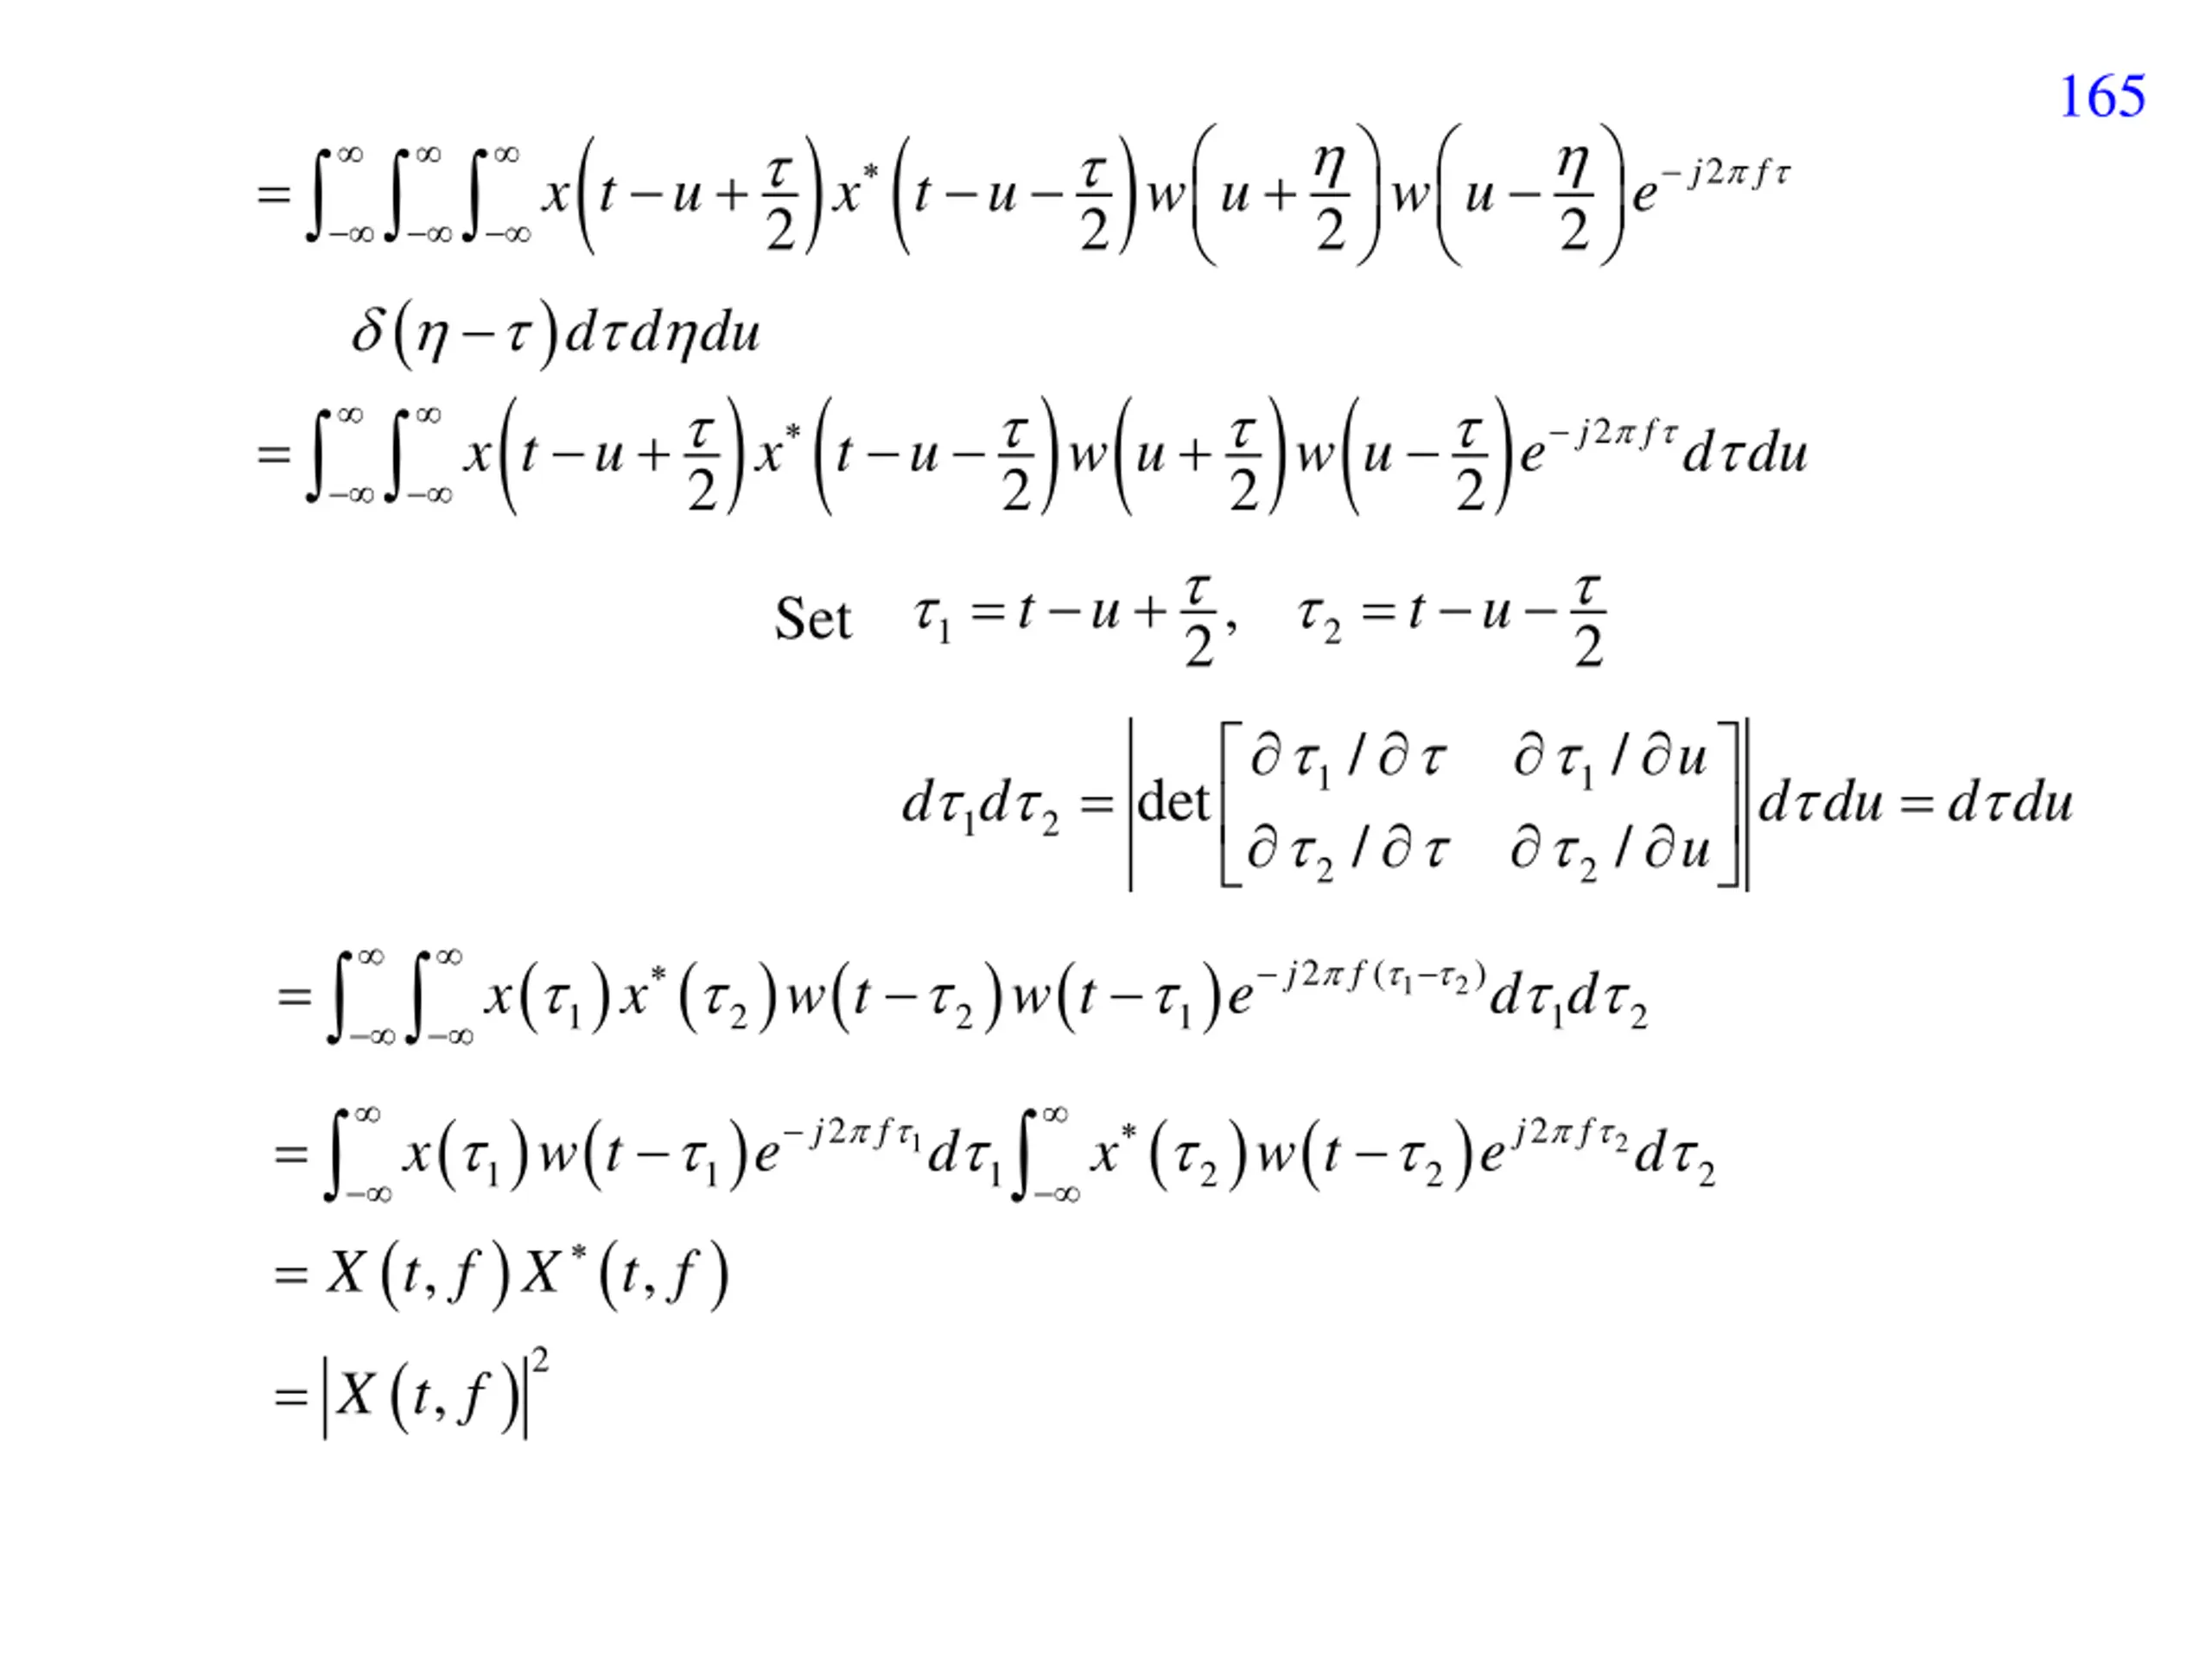 165
= ∫_{-∞}^{∞} ∫_{-∞}^{∞} ∫_{-∞}^{∞} x(t − u + τ/2) x^*(t − u − τ/2) w(u + η/2) w(u − η/2) e^{−j2πfτ}
δ(η − τ) dτ dη du
= ∫_{-∞}^{∞} ∫_{-∞}^{∞} x(t − u + τ/2) x^*(t − u − τ/2) w(u + τ/2) w(u − τ/2) e^{−j2πfτ} dτ du
Set τ_1 = t − u + τ/2, τ_2 = t − u − τ/2
dτ_1 dτ_2 = |det[∂τ_1/∂τ ∂τ_1/∂u; ∂τ_2/∂τ ∂τ_2/∂u]| dτ du = dτ du
= ∫_{-∞}^{∞} ∫_{-∞}^{∞} x(τ_1) x^*(τ_2) w(t − τ_2) w(t − τ_1) e^{−j2πf(τ_1−τ_2)} dτ_1 dτ_2
= ∫_{-∞}^{∞} x(τ_1) w(t − τ_1) e^{−j2πfτ_1} dτ_1 ∫_{-∞}^{∞} x^*(τ_2) w(t − τ_2) e^{j2πfτ_2} dτ_2
= X(t, f) X^*(t, f)
= |X(t, f)|^2